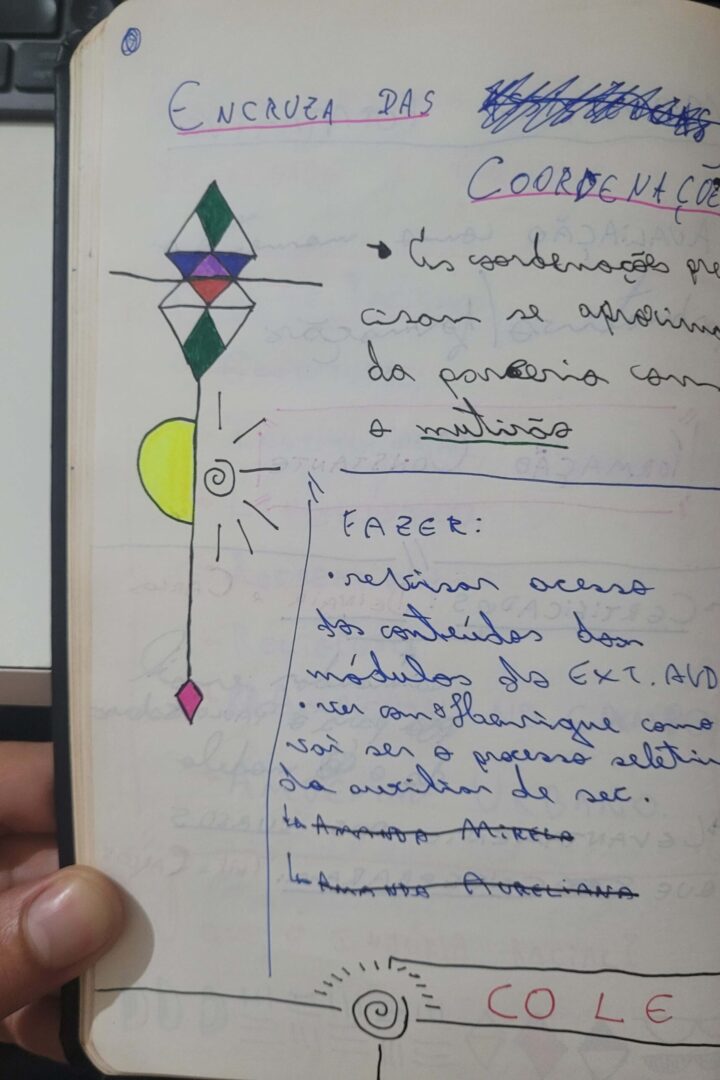 ENCRUZA DAS
COORDENAÇÕE
→ As coordenações pre
cisam se aproxima
da parceria com
o mutirão
FAZER:
• revisar acesso
dos conteúdos dos
módulos da EXT. AVD
• ver com Henrique como
vai ser o processo seletiv
da auxiliar de sec.
↳ AMANDA MIRELA
↳ AMANDA AURELIANA
COLE